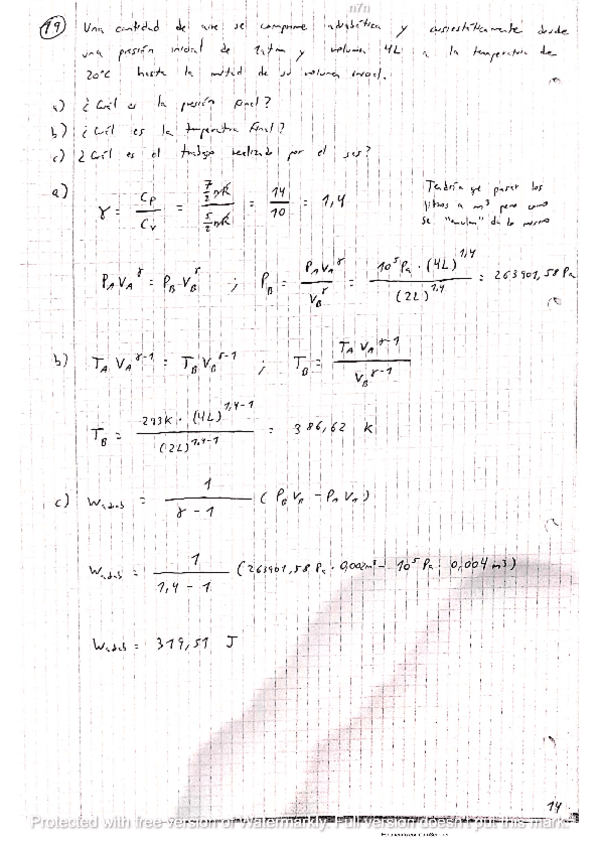 n7n
19 Una cantidad de aire se comprime adiabática y cuasiestáticamente desde
una presión inicial de 1atm y volumen 4L a la temperatura de
20°C hasta la mitad de su volumen inicial.
a) ¿Cuál es la presión final?
b) ¿Cuál es la temperatura final?
c) ¿Cuál es el trabajo realizado por el gas?
a) γ = Cp/Cv = (7/2 nR)/(5/2 nR) = 14/10 = 1,4
Tendría que pasar los
litros a m³ pero como
se "anulan" da lo mismo
P_A V_A^γ = P_B · V_B^γ ; P_B = P_A V_A^γ / V_B^γ = 10⁵ Pa · (4L)^1,4 / (2L)^1,4 = 263901,58 Pa
b) T_A V_A^γ-1 = T_B V_B^γ-1 ; T_B = T_A V_A^γ-1 / V_B^γ-1
T_B = 293K · (4L)^1,4-1 / (2L)^1,4-1 = 386,62 K
c) W_adiab = 1/(γ-1) (P_B V_B - P_A V_A)
W_adiab = 1/(1,4-1) (263901,58 Pa · 0,002m³ - 10⁵ Pa · 0,004 m³)
W_adiab = 319,51 J
14
Protected with free version of Watermarkly. Full version doesn't put this mark.